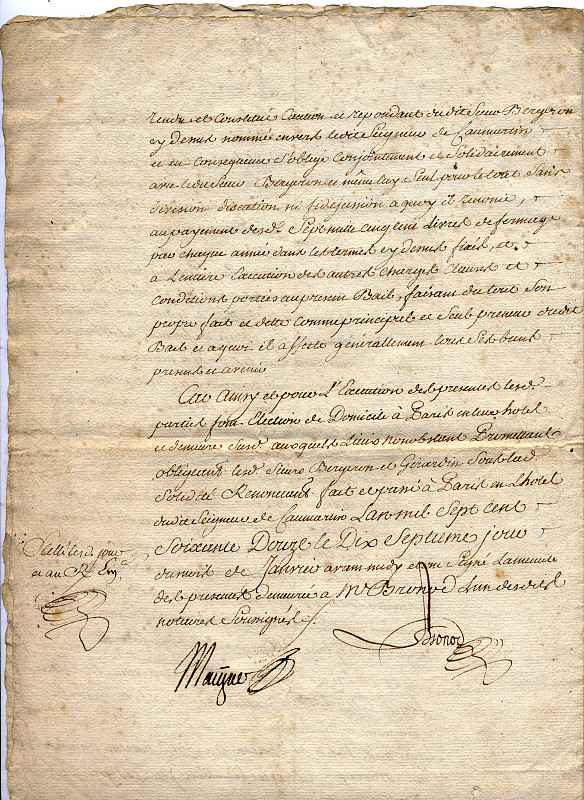 rendu et Constitué Caution et repondant dudit Sieur Bergeron
cy dessus nommé envers ledit Seigneur de Saumartin
et en Consequence S'oblige Conjointement et Solidairement
avec led. Sieur Bergeron et même luy Seul pour le tout Sans
division discution ni fidejussion a quoy il renonce,
au payement desd. Sept mille Cinq cent Livres de fermage
par chaque année dans les termes cy dessus fixés, et
a L'entiere Execution des autres Charges Clauses et
conditions portées au present Bail, faisant du tout Son
propre fait et dette Comme principal et Seul preneur dudit
Bail et a quoy il affecte generallement tous Ses biens
presens et avenir
Car Ainsy et pour L'Execution des presentes lesd.
parties font Election de Domicile à Paris en leur hotel
et demeure Susd. auxquels Lieux nonobstant Promettant
obligeant lesd. Sieurs Bergeron et Gerardin Sous lad.
Solidité Renonceant fait et passé à Paris en L'hotel
dudit Seigneur de Saumartin L'an mil Sept cent
Soixante Douze le Dix Septieme jour
du mois de Janvier avant midy et ont Signé La minute
des presentes demeurée à Me Bronod L'un desdits
notaires Soussignés
Scellé lesd. jour
et an
Bronod
Maigne